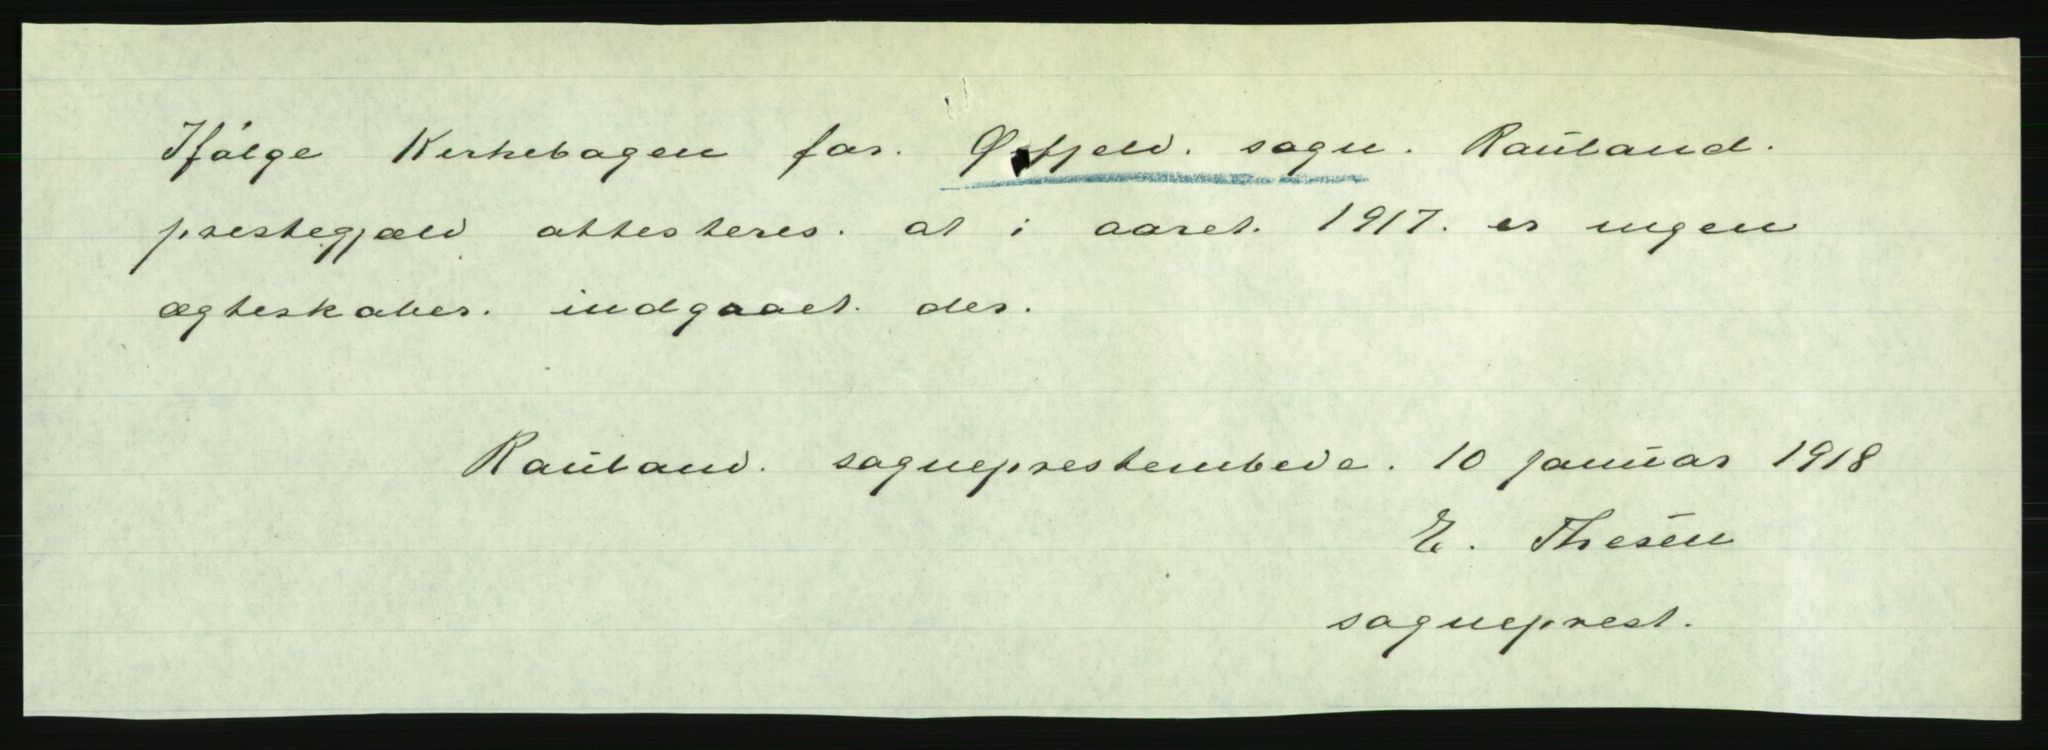 Ifølge Kirkebogen for. Øyfjeld. sogn. Rauland.
prestegjæld attesteres. at i aaret. 1917. er ingen
ægteskaber. indgaaet. der.
Rauland. sogneprestembede. 10 januar 1918
E. Thesen
sogneprest.